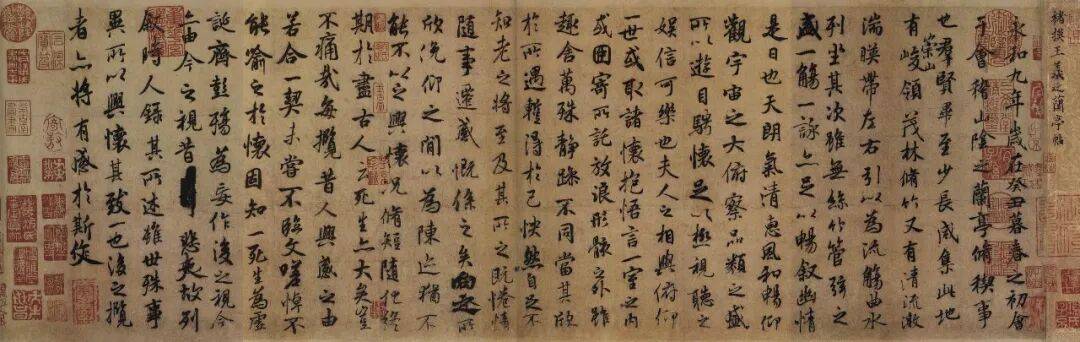 褚摸王羲之蘭亭帖
永和九年歲在癸丑暮春之初會
于會稽山陰之蘭亭脩稧事
也羣賢畢至少長咸集此地
有崇山峻領茂林脩竹又有清流激
湍暎帶左右引以為流觴曲水
列坐其次雖無絲竹管弦之
盛一觴一詠亦足以暢敘幽情
是日也天朗氣清惠風和暢仰
觀宇宙之大俯察品類之盛
所以遊目騁懷足以極視聽之
娛信可樂也夫人之相與俯仰
一世或取諸懷抱悟言一室之內
或因寄所託放浪形骸之外雖
趣舍萬殊靜躁不同當其欣
於所遇暫得於己怏然自足不
知老之將至及其所之既惓情
隨事遷感慨係之矣向之所
欣俛仰之間以為陳迹猶不
能不以之興懷況脩短隨化終
期於盡古人云死生亦大矣豈
不痛哉每攬昔人興感之由
若合一契未嘗不臨文嗟悼不
能喻之於懷固知一死生為虛
誕齊彭殤為妄作後之視今
亦由今之視昔悲夫故列
敘時人錄其所述雖世殊事
異所以興懷其致一也後之攬
者亦將有感於斯文